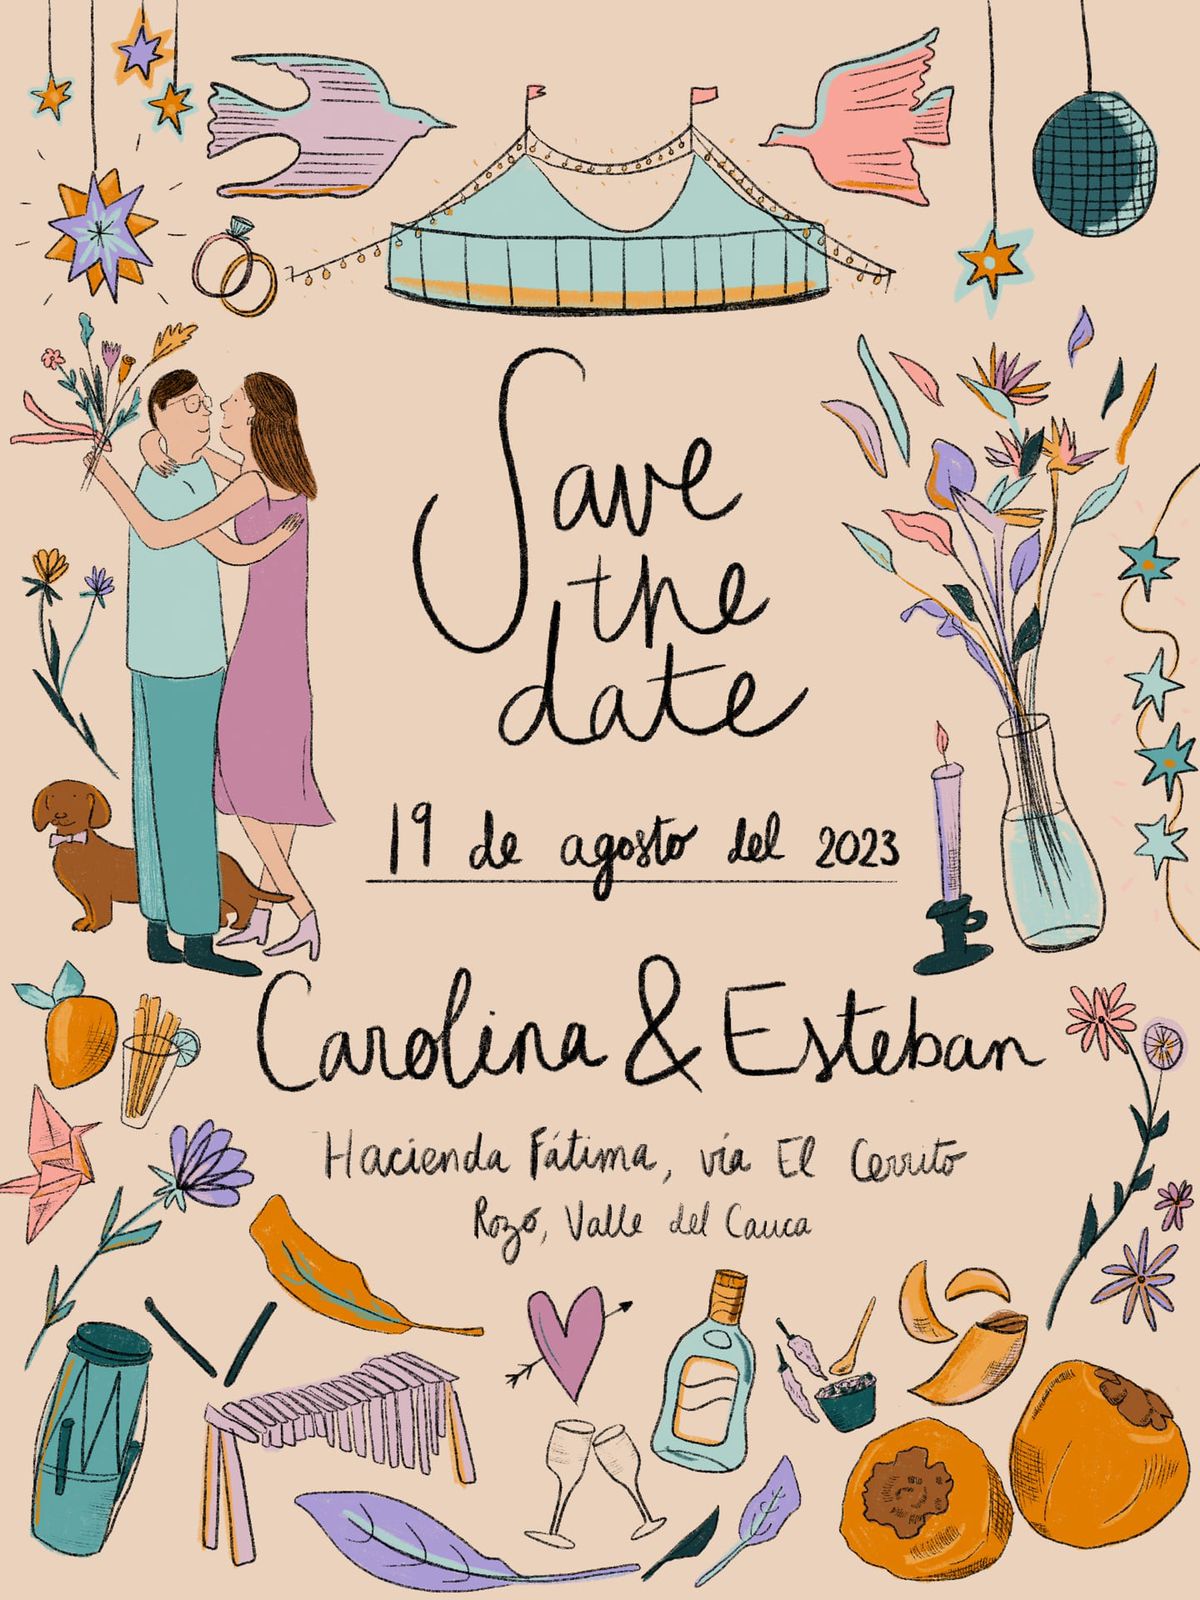 Save
the
date
19 de agosto del 2023
Carolina & Esteban
Hacienda Fátima, vía El Cerrito
Rozo, Valle del Cauca